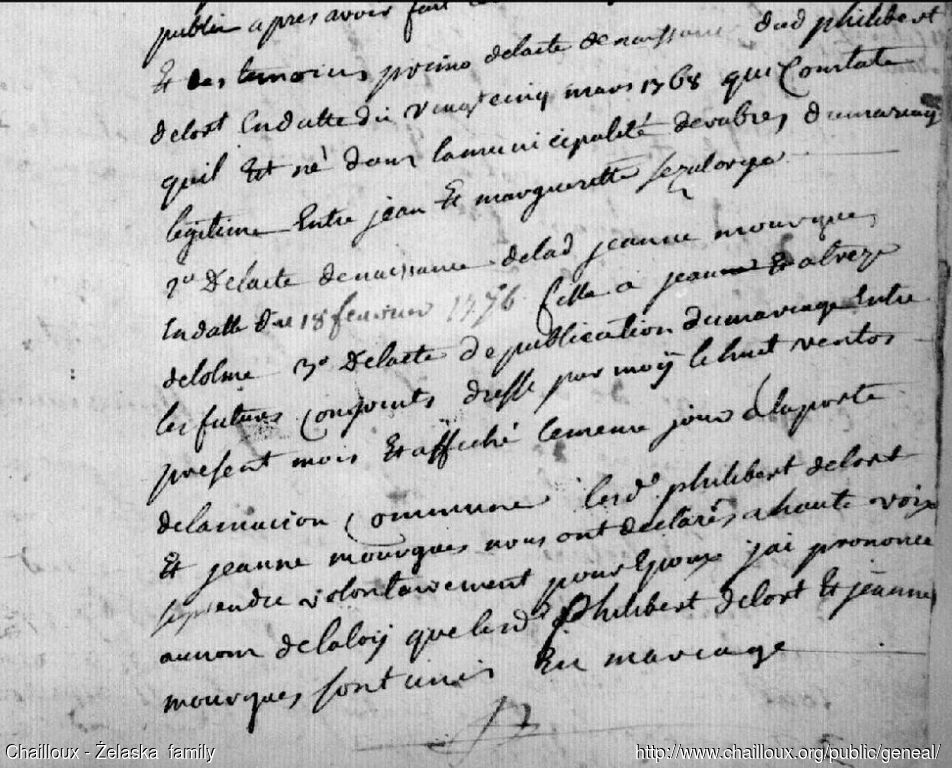 publier apres avoir fait
Et des temoins primo delacte denaissance dud philibert
delort Endatte du vingt cinq mars 1768 qui Constate
quil Est né dans lamunicipalité devabres dumariage
légitime Entre jean Et margueritte
2º Delacte denaissance delad jeanne mourgues
Endatte Du 18 fevrier 1776 fille a jean Et
delolme 3º Delacte depublication dumariage Entre
les futurs Conjoints dressé par moÿ lehuit ventos
present mois Et affiché lememe jour a laporte
delamaison Commune lesdº philibert delort
Et jeanne mourgues nous ont declarés ahaute voix
seprendre volontairement pour Epoux jai prononcé
aunom delaloÿ que lesdº Philibert delort Et jeanne
mourgues sont unis En mariage
Chailloux - Želaska family
http://www.chailloux.org/public/geneal/